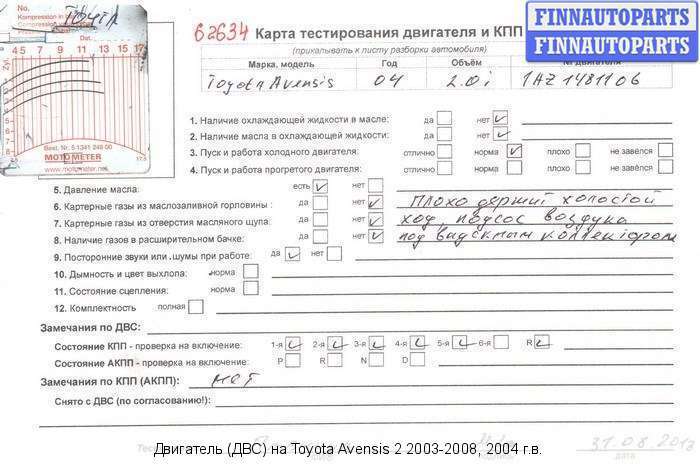 No.
Kompression in
Compression
TOYOTA
4 5 7 9 11 13 15 17
Zyl.
Best. Nr. 5 1341 248 00
MOTOMETER
www.motometer.net
17.5
62634 Карта тестирования двигателя и КПП
(прикалывать к листу разборки автомобиля)
FINNAUTOPARTS
FINNAUTOPARTS
Марка, модель Год Объём № двигателя
Toyota Avensis 04 2.0i 1AZ 1481106
1. Наличие охлаждающей жидкости в масле: да нет
2. Наличие масла в охлаждающей жидкости: да нет
3. Пуск и работа холодного двигателя: отлично норма плохо не завелся
4. Пуск и работа прогретого двигателя: отлично норма плохо не завёлся
5. Давление масла: есть нет
6. Картерные газы из маслозаливной горловины : да нет плохо держит холостой
7. Картерные газы из отверстия масляного щупа: да нет ход подсос воздуха
8. Наличие газов в расширительном бачке: да нет под впускным коллектором
9. Посторонние звуки или шумы при работе: да нет
10. Дымность и цвет выхлопа: норма
11. Состояние сцепления: норма
12. Комплектность полная
Замечания по ДВС:
Состояние КПП - проверка на включение: 1-я 2-я 3-я 4-я 5-я 6-я R
Состояние АКПП - проверка на включение: P R N D
Замечания по КПП (АКПП): нет
Снято с ДВС (по согласованию!):
31.08.2013
дата
Двигатель (ДВС) на Toyota Avensis 2 2003-2008, 2004 г.в.